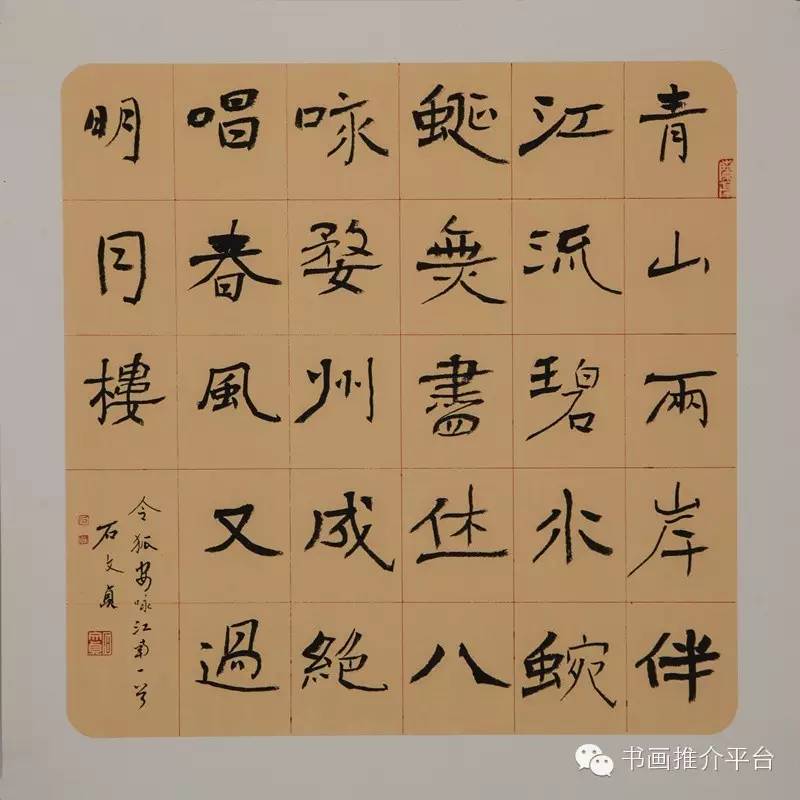 青山兩岸伴
江流碧水蜿
蜒無盡休八
咏婺州成絕
唱春風又過
明月樓
令狐安咏江南一首
石文貞
书画推介平台